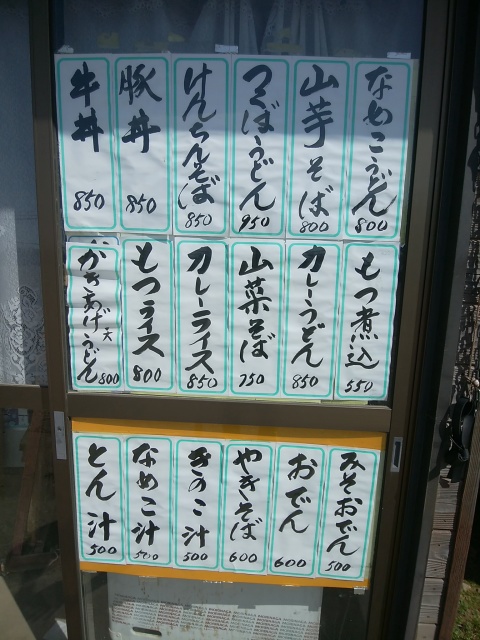 なめこうどん 800
山芋そば 800
つくばうどん 950
けんちんそば 850
豚丼 850
牛丼 850
もつ煮込 550
カレーうどん 850
山菜そば 750
カレーライス 850
もつライス 800
かきあげ天うどん 800
みそおでん 500
おでん 600
やきそば 600
きのこ汁 500
なめこ汁 500
とん汁 500